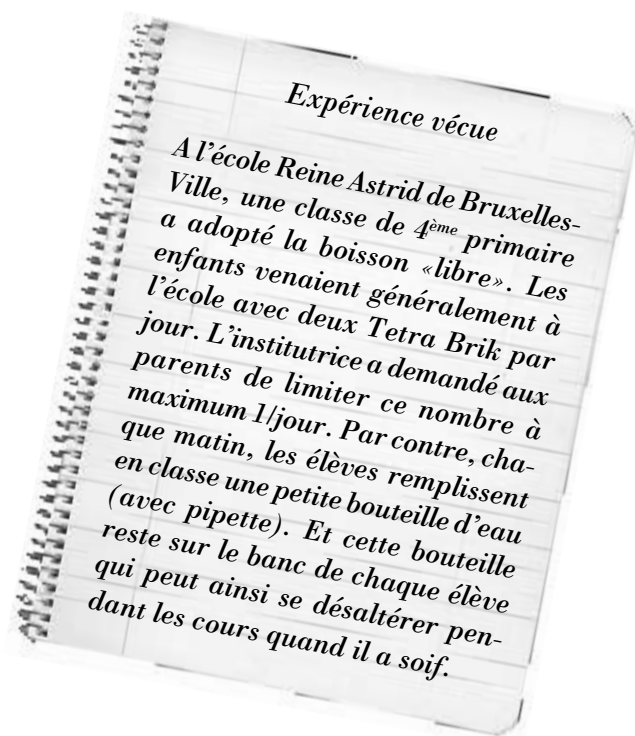 Expérience vécue
A l'école Reine Astrid de Bruxelles-
Ville, une classe de 4ème primaire
a adopté la boisson «libre». Les
enfants venaient généralement à
l'école avec deux Tetra Brik par
jour. L'institutrice a demandé aux
parents de limiter ce nombre à
maximum 1/jour. Par contre, cha-
que matin, les élèves remplissent
en classe une petite bouteille d'eau
(avec pipette). Et cette bouteille
reste sur le banc de chaque élève
qui peut ainsi se désaltérer pen-
dant les cours quand il a soif.